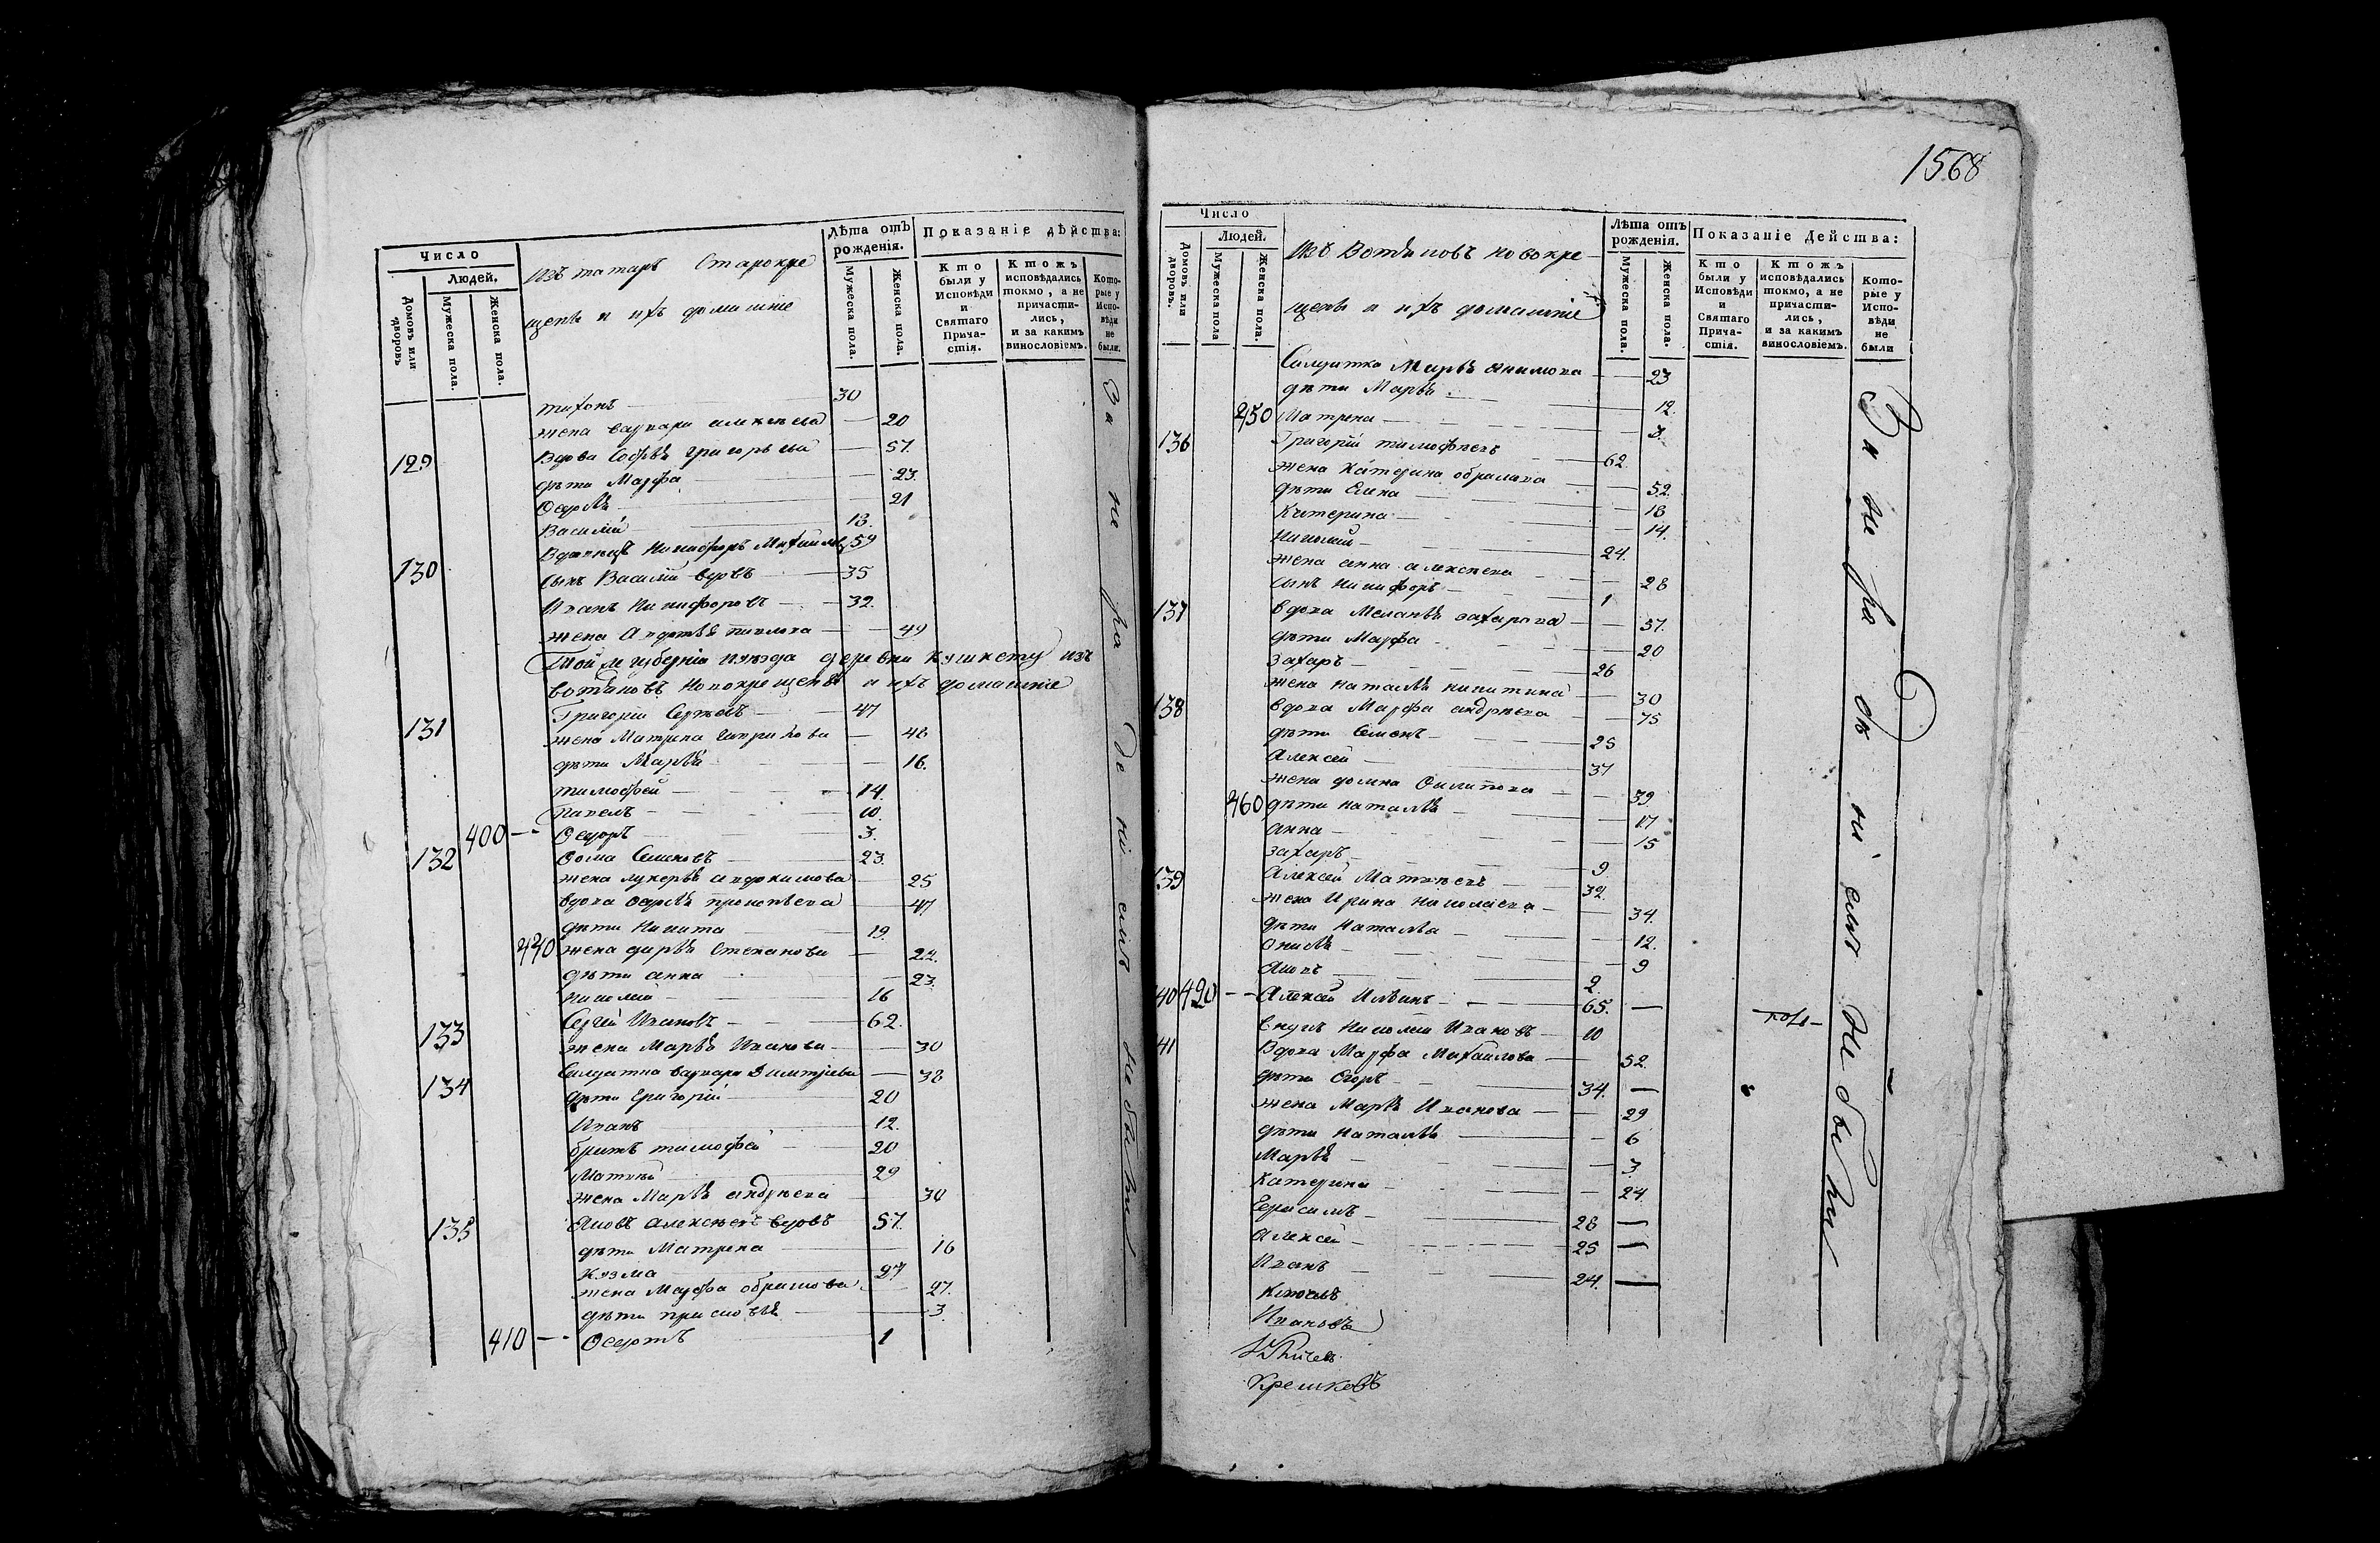 1568
Число
Людей.
Домовъ или дворовъ.
Мужеска пола.
Женска пола.
Изъ татаръ Старокре
щенъ и ихъ домашніе
Лѣта отъ рожденія.
Мужеска пола.
Женска пола.
Показаніе дѣйства:
Кто были у Исповѣди и Святаго Причастія.
Ктожъ исповѣдались токмо, а не причастились, и за какимъ винословіемъ.
Которые у Исповѣди не были.
тихонъ 30
жена варвара алексѣева 20
129 Вдова Софья григорьева 57.
дѣти Марфа 23.
Ѳедосья 21
Василій 13.
130 Вдовецъ Никифоръ Михайловъ 59
сынъ Василій вдовъ 35
Иванъ Никифоровъ 32.
жена Авдотья павлова 49
Той же губерніи и уѣзда деревни кушкету изъ
вотяковъ новокрещенъ и ихъ домашніе
131 Григорій Сергѣевъ 47
жена Матрена гаврилова 48
дѣти Марья 16.
тимофей 14.
Павелъ 10.
400 Ѳедоръ 3.
132 Ѳома Семеновъ 23.
жена лукерья евдокимова 25
вдова дарья прокопьева 47
дѣти Никита 19.
440 жена дарья Степанова 22.
дѣти анна 23.
николай 16
133 Сергѣй Ивановъ 62.
жена Марья Иванова 30
134 Салдатка варвара Дмитріева 38
дѣти Григорій 20
Иванъ 12.
братъ тимофей 20
Матвѣй 29
жена Марья андрѣева 30
135 Яковъ алексѣевъ вдовъ 57.
дѣти Матрена 16
Кузма 27
жена Марфа 27.
дѣти 3.
410 1
За не ра де ні емъ не были
Число
Людей.
Домовъ или дворовъ.
Мужеска пола
Женска пола.
Изъ Вотяковъ новокре
щенъ и ихъ домашніе
Лѣта отъ рожденія.
Мужеска пола.
Женска пола.
Показаніе Действа:
Кто были у Исповѣди и Святаго Причастія.
Ктожъ исповѣдались токмо, а не причастились, и за какимъ винословіемъ.
Которые у Исповѣди не были
Салдатка Марья якимова 23
дѣти Марья 12.
450 Матрена
136 Григорій тимофѣевъ 62.
жена Катерина 52.
дѣти Елена 18
Катерина 14.
Николай 24.
жена анна алексѣева 28
сынъ Никифоръ 1
137 вдова Меланья захарова 57.
дѣти Марфа 20
Захаръ 26
жена наталья никитина 30
138 вдова Марфа андрѣева 75
дѣти Семенъ 25
Алексей 37
жена домна Филипова 39
460 дѣти наталья 17
анна 15
захаръ 9
139 Алексей Матвѣевъ 32
жена Ирина николаева 34.
дѣти Наталья 12.
9
Яковъ 2.
140 420 Алексей Ильинъ 65.
внукъ Николай Ивановъ 10
141 Вдова Марфа Михаилова 52.
дѣти Егоръ 34.
жена Марья Иванова 29
дѣти наталья 6
Марья 3
Катерина 24
Герасимъ 28
Алексей 25
Иванъ 24.
За не ра де ні емъ не были